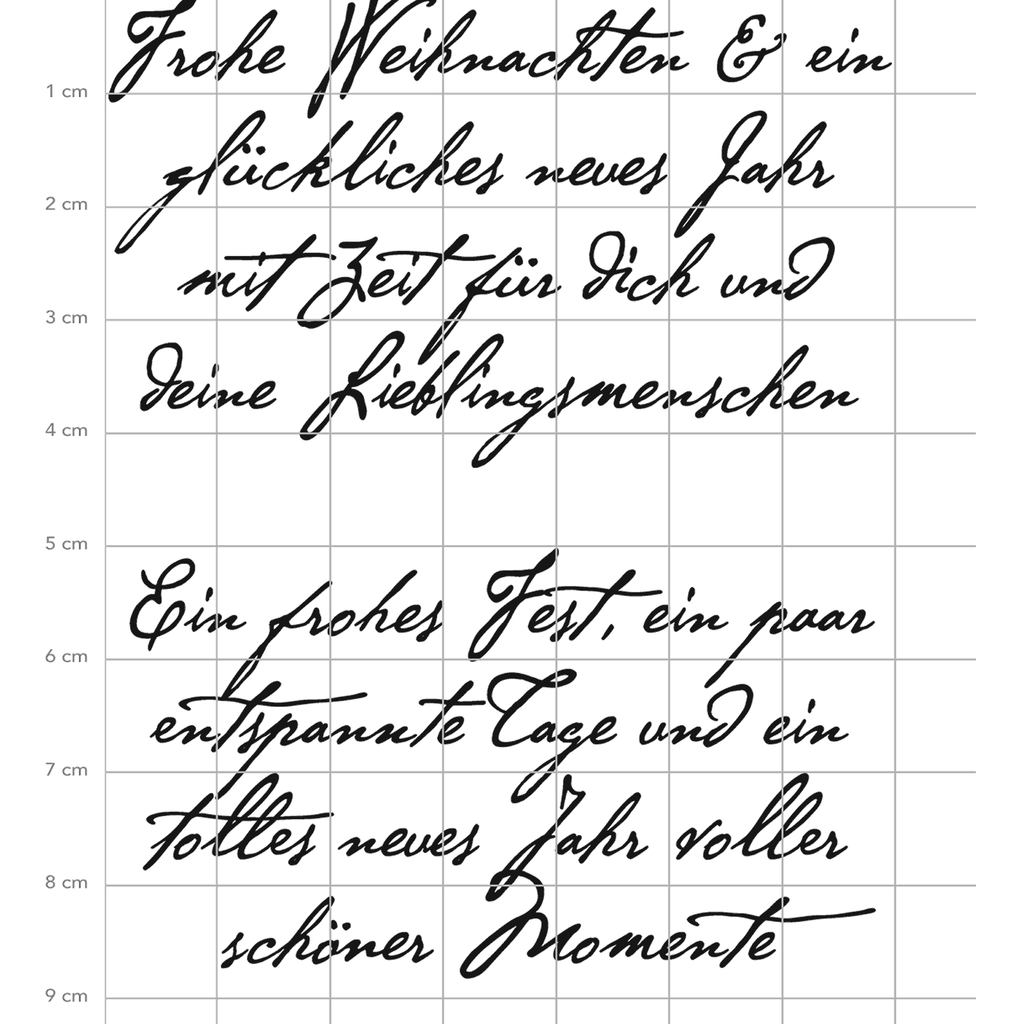 Frohe Weihnachten & ein
1 cm
glückliches neues Jahr
2 cm
mit Zeit für dich und
3 cm
deine Lieblingsmenschen
4 cm
5 cm
Ein frohes Fest, ein paar
6 cm
entspannte Tage und ein
7 cm
tolles neues Jahr voller
8 cm
schöner Momente
9 cm